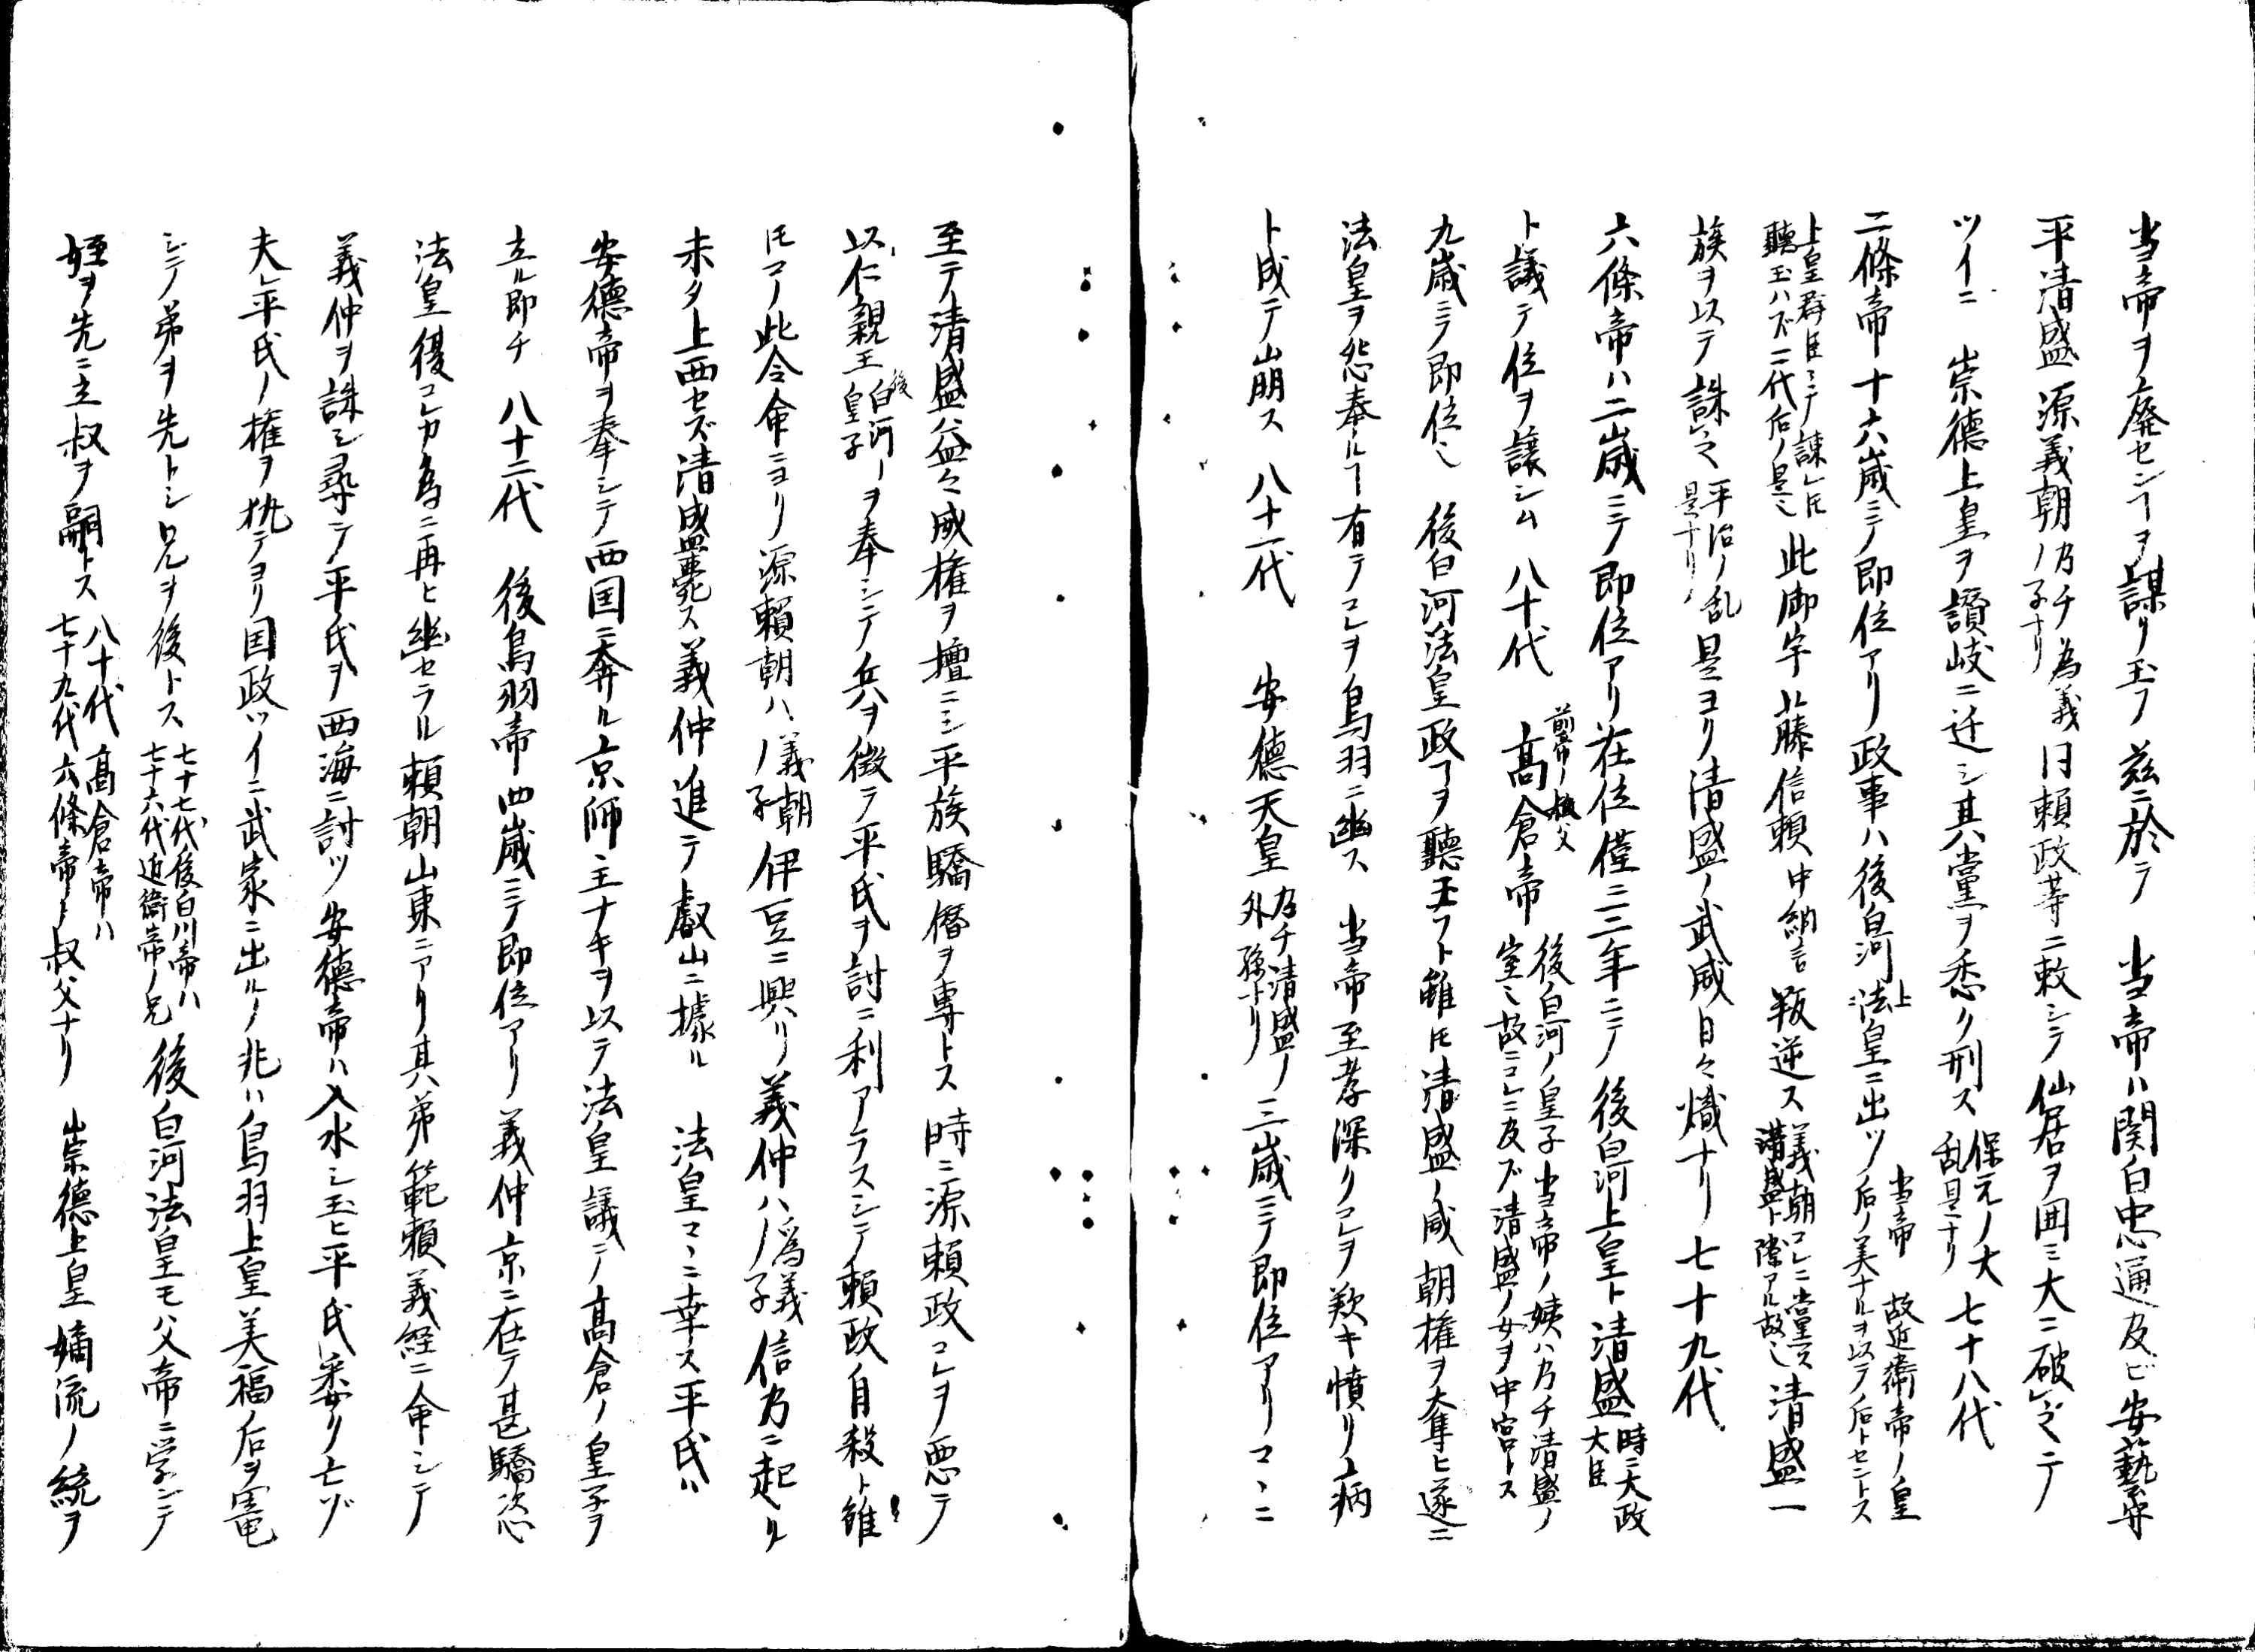 当帝ヲ廃センヿヲ謀リ玉フ 茲ニ於テ 当帝ハ関白忠通及ビ安藝守
平清盛 源義朝 乃チ為義ノ子ナリ 同頼政等ニ敕シテ仙居ヲ囲ミ大ニ破之テ
ツイニ 崇徳上皇ヲ讃岐ニ迁シ其黨ヲ悉ク刑ス 保元ノ大乱是ナリ 七十八代
二條帝十六歳ニテ即位アリ政事ハ後白河法皇ニ出ツ 当帝 故近衛帝ノ皇后ノ美ナルヲ以テ后トセントス
上皇群臣ミナ諌レ𪜈聴玉ハズ二代后ノ是也 此御宇ニ藤信頼 中納言 叛逆ス 義朝コレニ黨ス清盛ト隙アル故也 清盛一
族ヲ以テ誅之 平治ノ乱是ナリ 是ヨリ清盛ノ武威日々熾ナリ 七十九代
六條帝ハ二歳ニテ即位アリ在位僅ニ三年ニテ後白河上皇ト清盛 時ニ大政大臣
ト議テ位ヲ譲シム 八十代 前帝ノ叔父 髙倉帝 後白河ノ皇子当帝ノ姨ハ乃チ清盛ノ室也故ニコレニ及ブ清盛ノ女ヲ中宮トス
九歳ニテ即位也 後白河法皇政ヿヲ聴玉フト雖𪜈清盛ノ威朝権ヲ奪ヒ遂ニ
法皇ヲ怨奉ルヿ有テコレヲ鳥羽ニ幽ス 当帝至孝深クコレヲ歎キ憤リ病
ト成テ崩ス 八十一代 安徳天皇 乃チ清盛ノ外孫ナリ 三歳ニテ即位アリコヽニ
至テ清盛益々威権ヲ擅ニシ平族驕僭ヲ専トス 時ニ源頼政コレヲ悪テ
以仁親王 後白河ノ皇子 ヲ奉シテ兵ヲ徴テ平氏ヲ討ニ利アラスシテ頼政自殺ト雖
𪜈コノ此令命ニヨリ源頼朝ハ 義朝ノ子 伊豆ニ興リ義仲ハ 為義ノ子 信乃ニ起ル
未タ上西セズ清盛薨死ス義仲進テ叡山ニ據ル 法皇コヽニ幸ス平氏ハ
安徳帝ヲ奉シテ西国ニ奔ル京師主ナキヲ以テ法皇議テ髙倉ノ皇子ヲ
立ル即チ 八十二代 後鳥羽帝四歳ニテ即位アリ義仲京ニ在テ甚驕恣
法皇復コレカ為ニ再ヒ幽セラル頼朝山東ニアリ其弟範頼義経ニ命シテ
義仲ヲ誅シ尋テ平氏ヲ西海ニ討ツ 安徳帝ハ入水シ玉ヒ平氏悉ク亡ヅ
夫レ平氏ノ権ヲ執テヨリ国政ツイニ武家ニ出ルノ兆ハ鳥羽上皇美福后ヲ寵
シテノ弟ヲ先トシ兄ヲ後トス 七十七代後白川帝ハ七十六代近衛帝ノ兄 後白河法皇モ父帝ニ学シテ
姪ヲ先ニ立叔ヲ嗣トス 八十代髙倉帝ハ七十九代六條帝ノ叔父ナリ 崇徳上皇嫡流ノ統ヲ